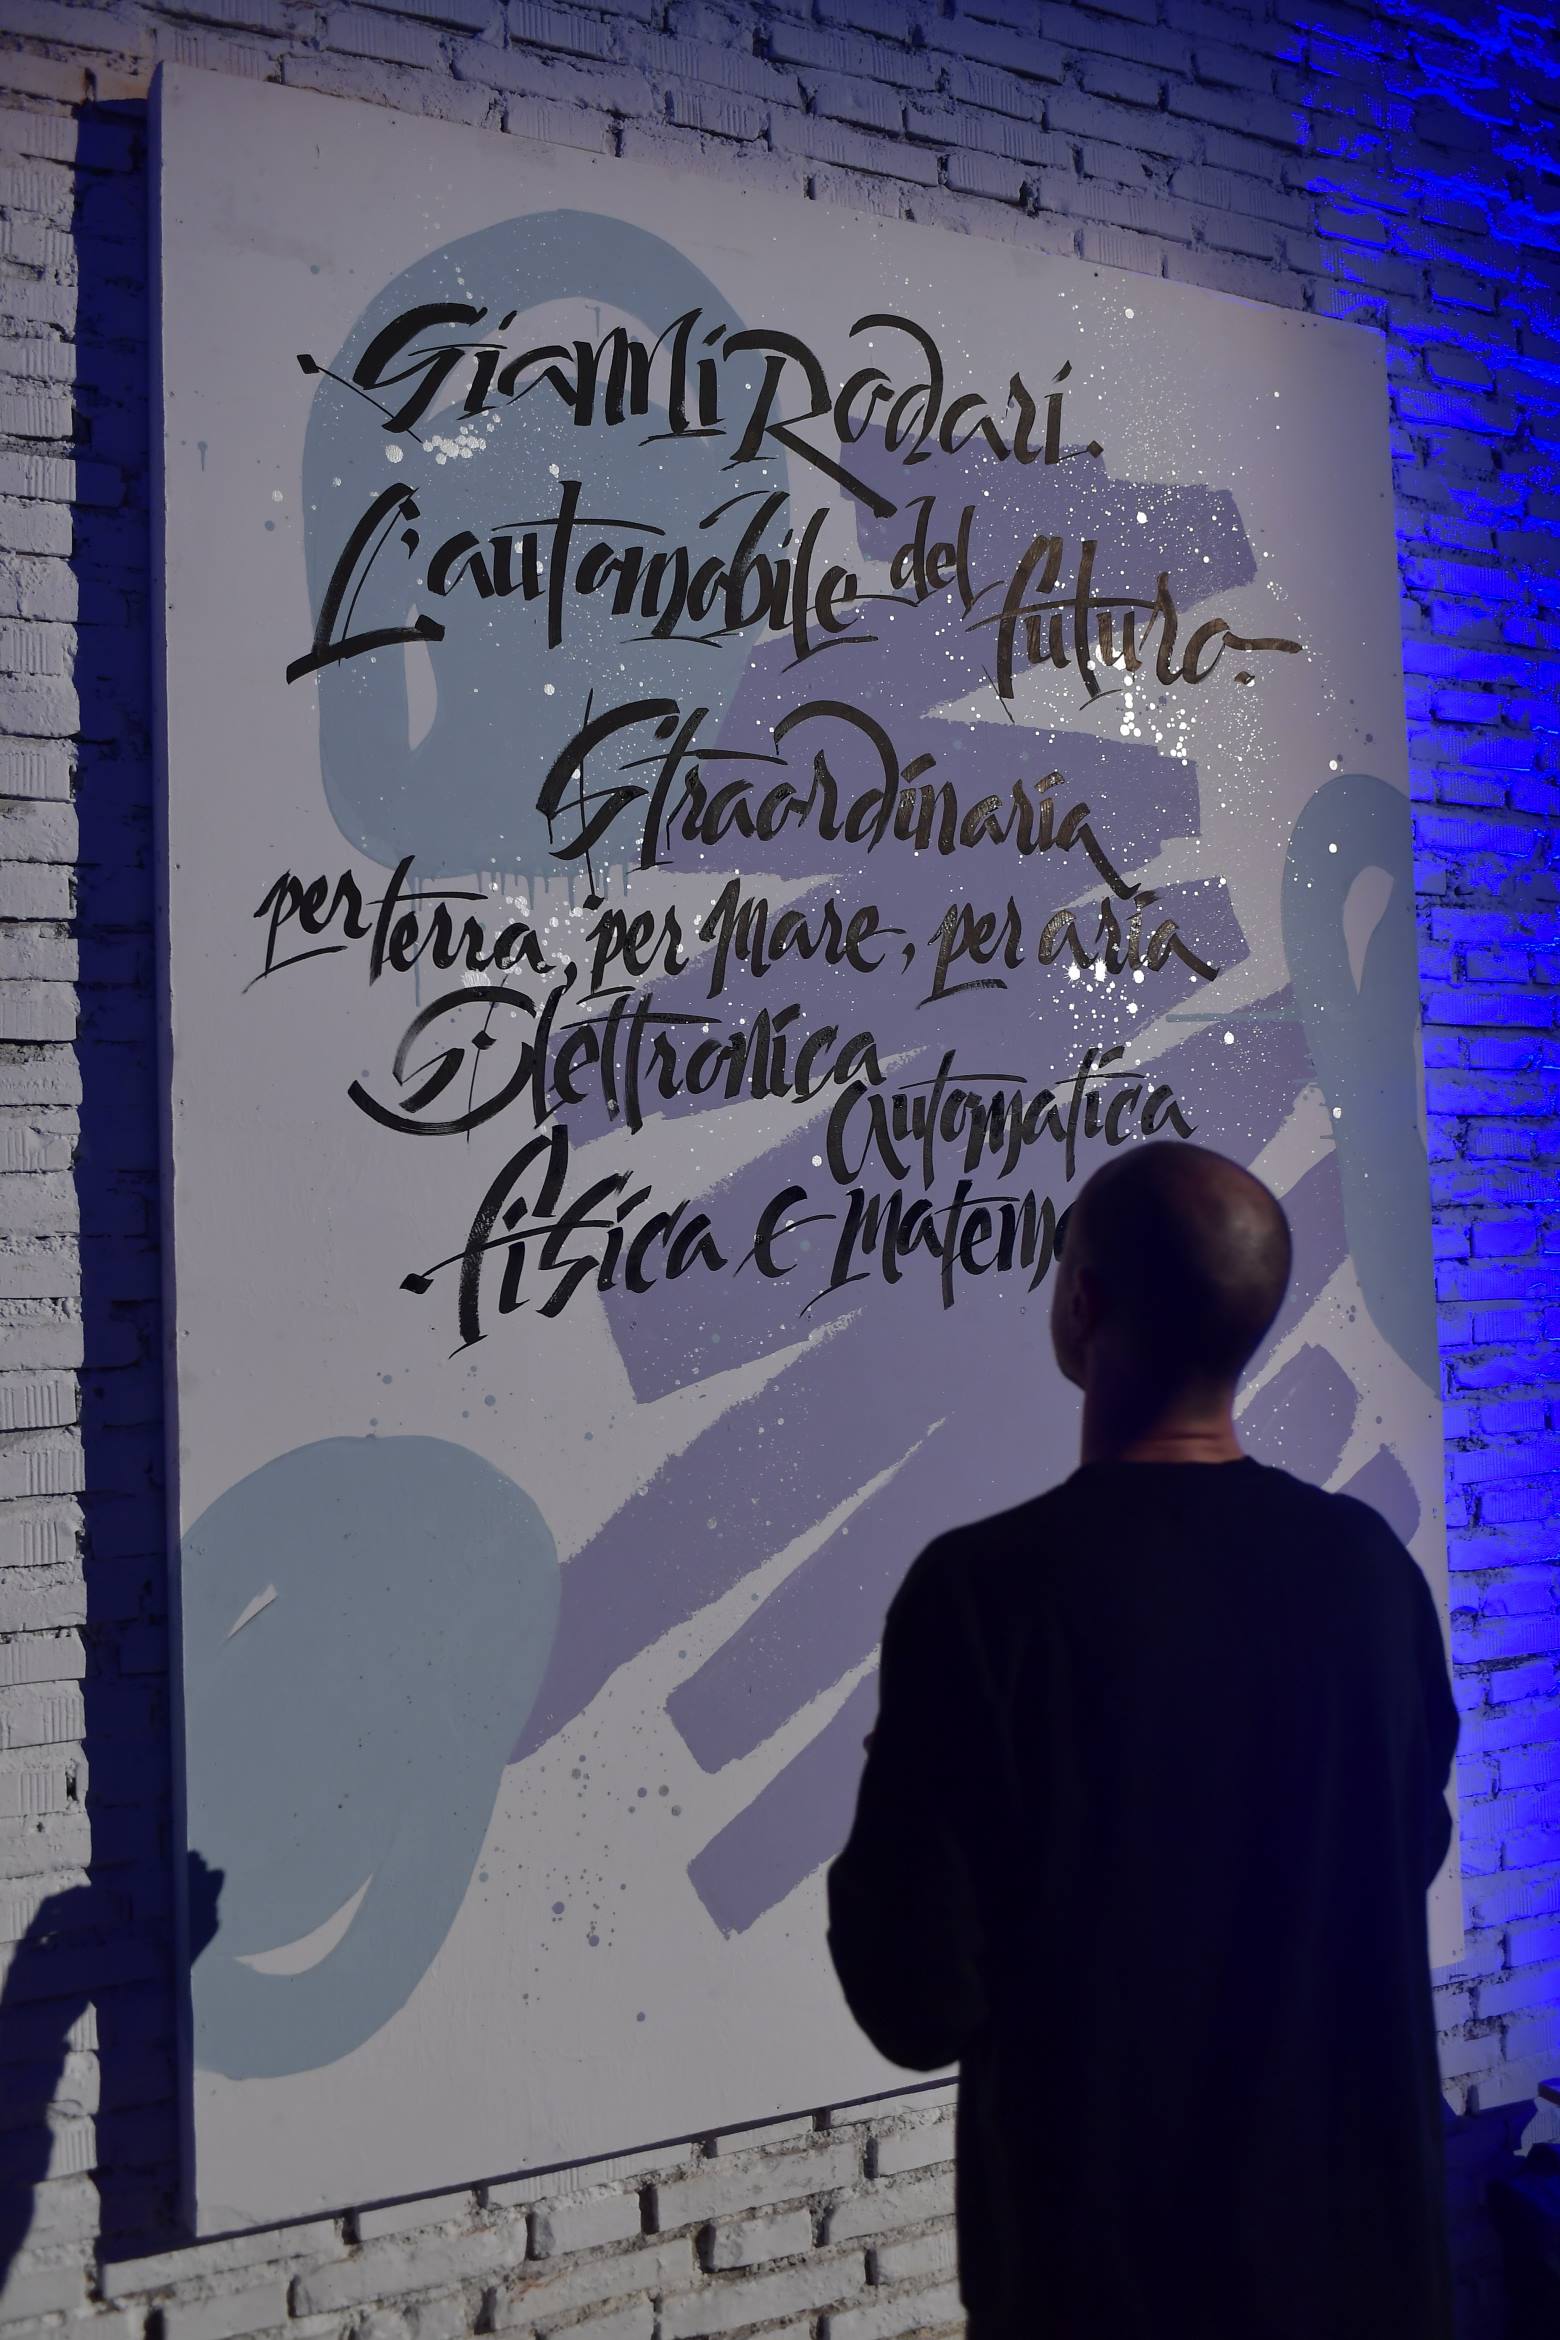 Gianni Rodari.
L'automobile del futuro.
Straordinaria
per terra, per mare, per aria
Elettronica
automatica
fisica e matema